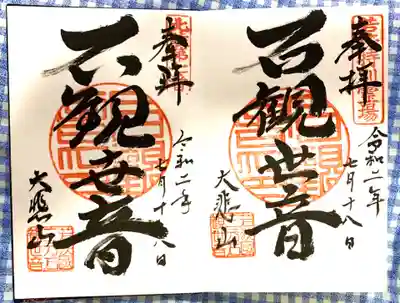 奉拝
令和二年
七月十八日
石観世音
大悲山
奉拝
令和二年
七月十八日
石観世音
大悲山